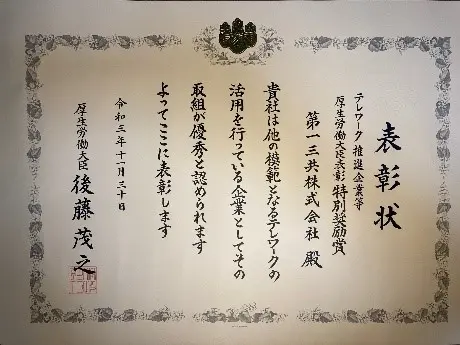 表彰状
テレワーク推進企業等
厚生労働大臣表彰 特別奨励賞
第一三共株式会社 殿
貴社は他の模範となるテレワークの
活用を行っている企業としてその
取組が優秀と認められます
よってここに表彰します
令和三年十一月三十日
厚生労働大臣 後藤茂之